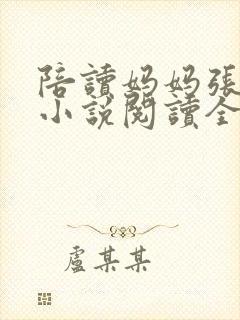 陪讀媽媽張
小說閱讀全
盧某某